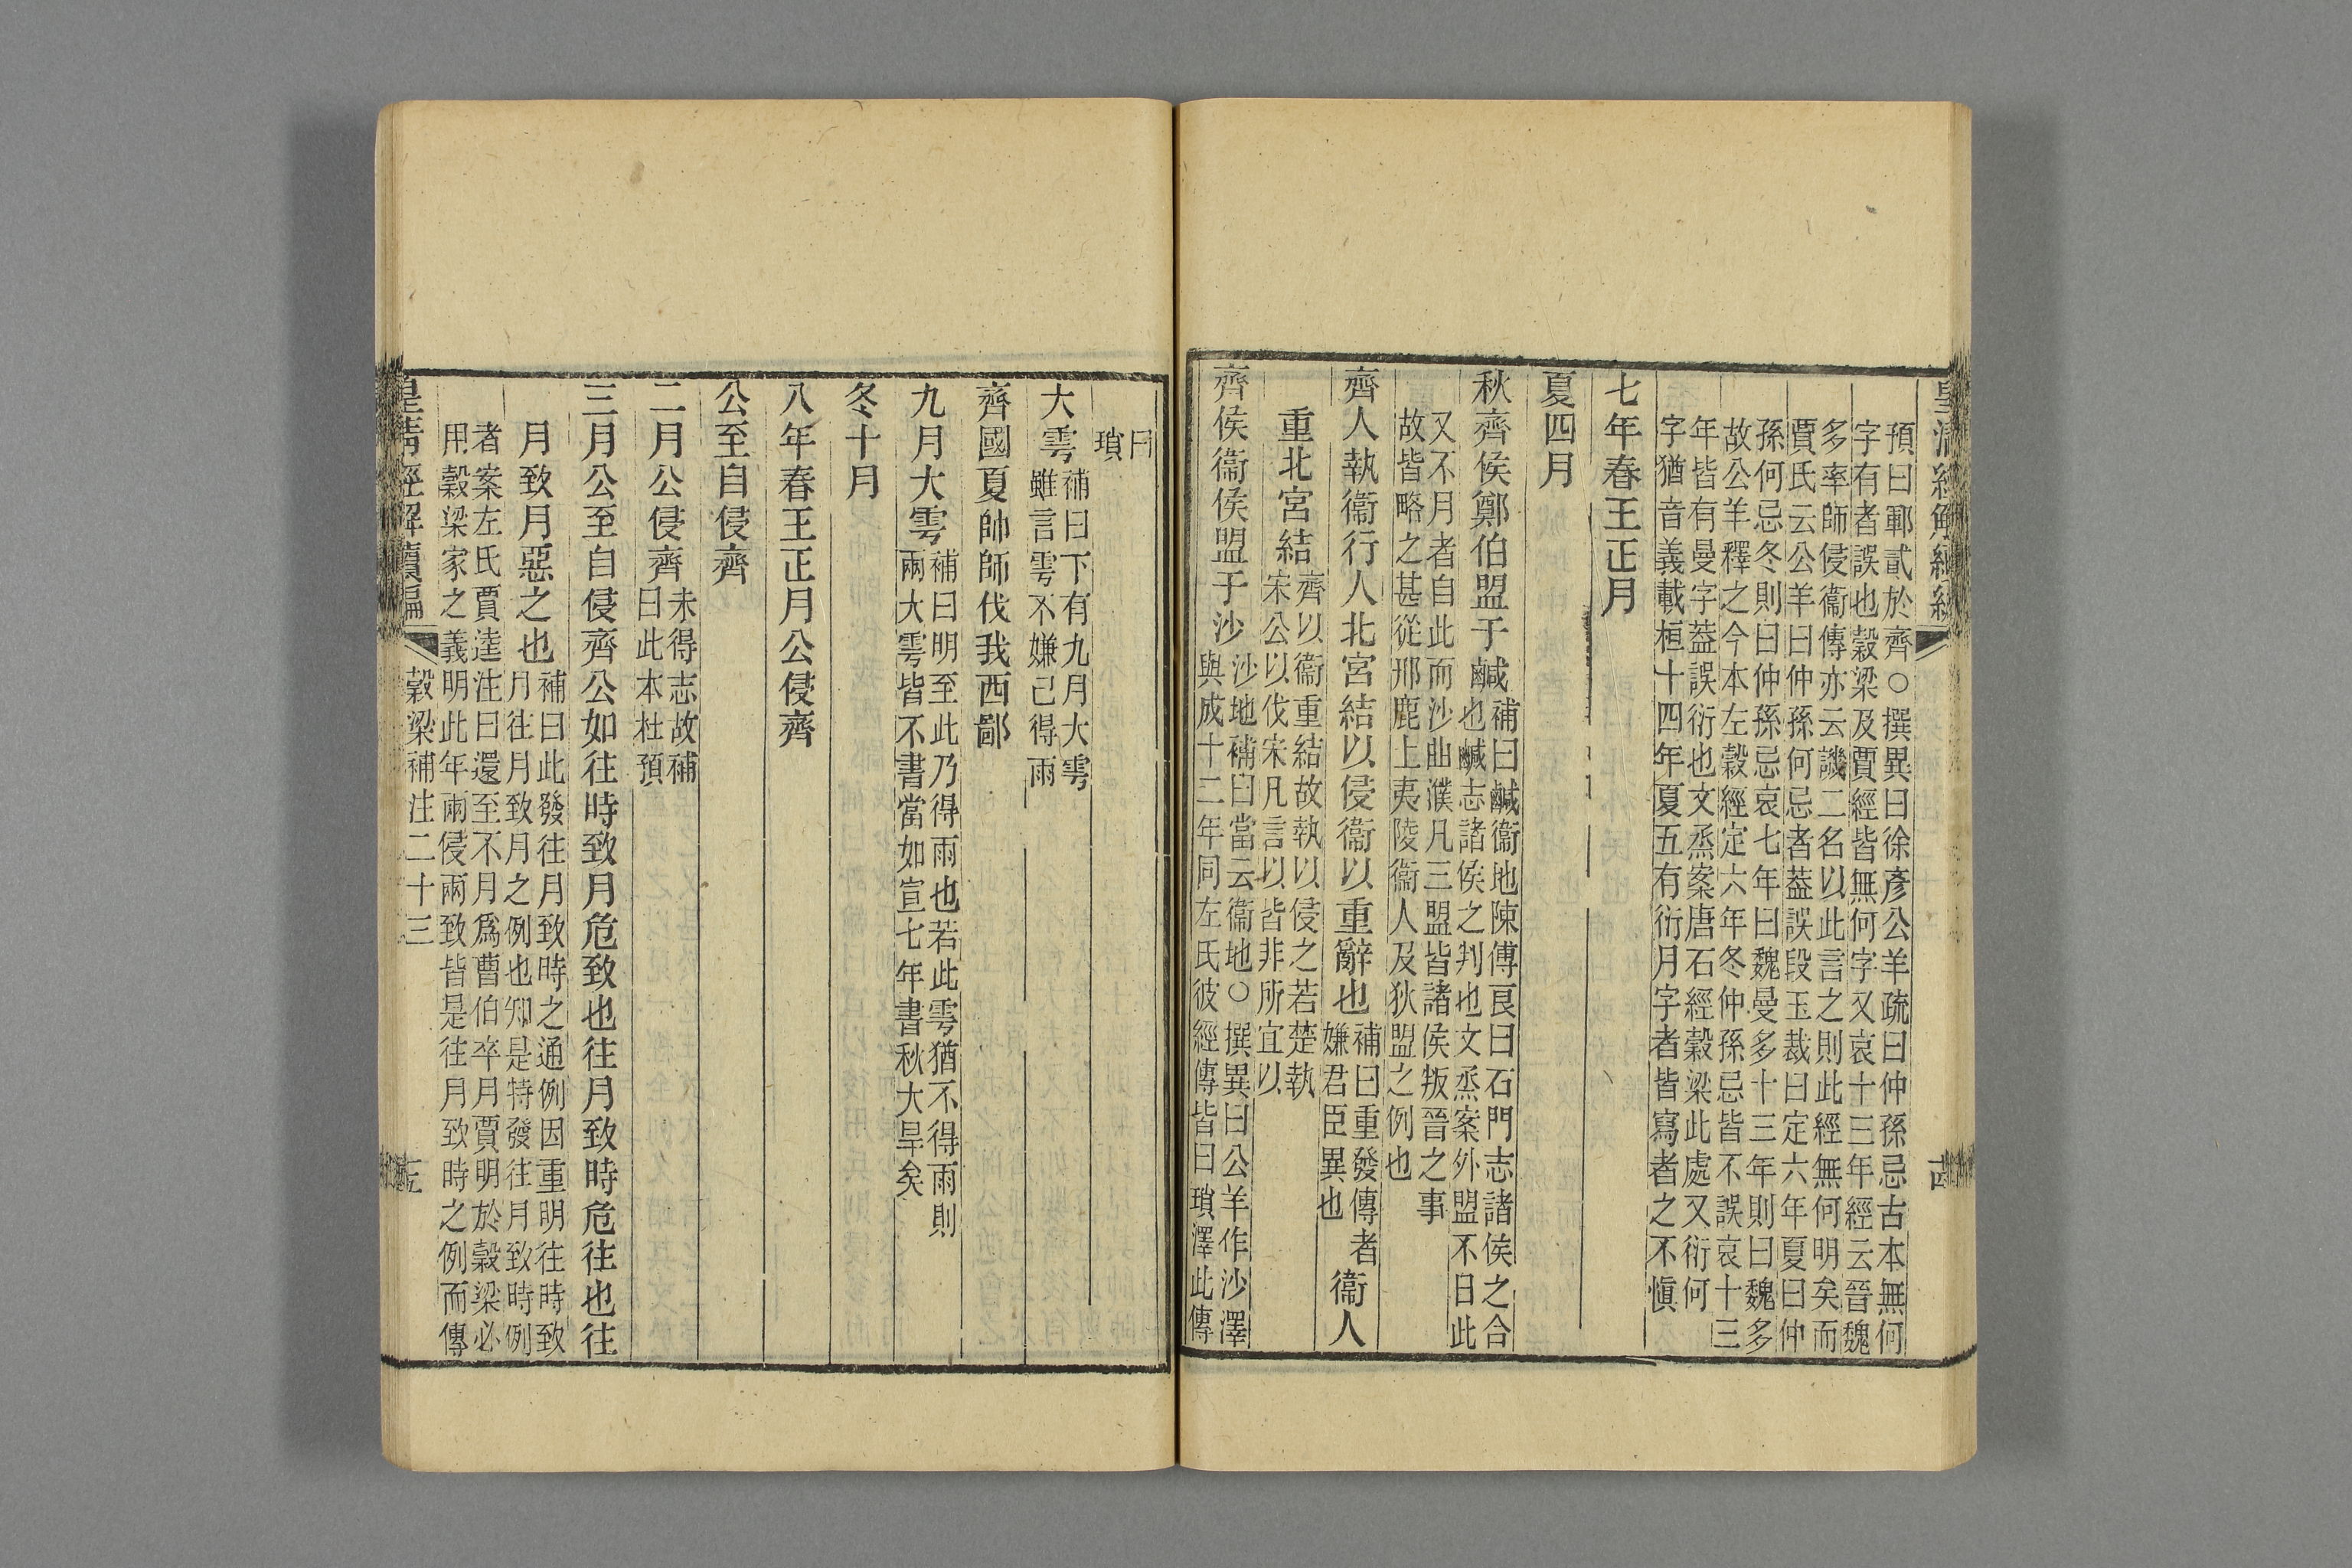 預曰鄆貳於齊○撰異曰徐彥公羊疏曰仲孫忌古本無何
字有者誤也穀梁及賈經皆無何字又哀十三年經云晉魏
多率師侵衞傳亦云譏二名以此言之則此經無何明矣而
賈氏云公羊曰仲孫何忌者葢誤段玉裁曰定六年夏曰仲
孫何忌冬則曰仲孫忌哀七年曰魏曼多十三年則曰魏多
故公羊釋之今本左穀經定六年冬仲孫忌皆不誤哀十三
年皆有曼字葢誤衍也文烝案唐石經穀梁此處又衍何
字猶音義載桓十四年夏五有衍月字者皆寫者之不愼
七年春王正月
夏四月
秋齊侯鄭伯盟于鹹補曰鹹衞地陳傅良曰石門志諸侯之合
也鹹志諸侯之判也文烝案外盟不日此
又不月者自此而沙曲濮凡三盟皆諸侯叛晉之事
故皆略之甚從邢鹿上夷陵衞人及狄盟之例也
齊人執衞行人北宮結以侵衞以重辭也補曰重發傳者
嫌君臣異也衞人
重北宮結齊以衞重結故執以侵之若楚執
宋公以伐宋凡言以皆非所宜以
齊侯衞侯盟于沙沙地補曰當云衞地○撰異曰公羊作沙澤
與成十二年同左氏彼經傳皆曰瑣澤此傳
曰
瑣
大雩補曰下有九月大雩
雖言雩不嫌已得雨
齊國夏帥師伐我西鄙
九月大雩補曰明至此乃得雨也若此雩猶不得雨則
兩大雩皆不書當如宣七年書秋大旱矣
冬十月
八年春王正月公侵齊
公至自侵齊
二月公侵齊未得志故補
曰此本杜預
三月公至自侵齊公如往時致月危致也往月致時危往也往
月致月惡之也補曰此發往月致時之通例因重明往時致
月往月致月之例也卿是特發往月致時例
者案左氏賈逵注曰還至不月爲曹伯卒月賈明於穀梁必
用穀梁家之義明此年兩侵兩致皆是往月致時之例而傳
皇清經解續編
穀梁補注二十三